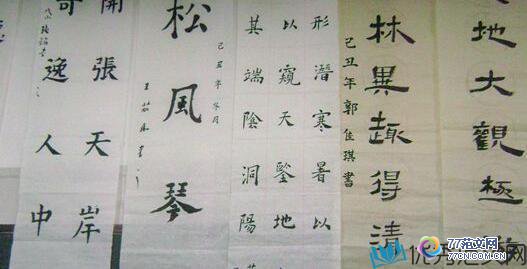 地大觀極
林異趣得清
己丑年郭佳琪書
形潛寒暑以
以窺天鑒地
其端陰洞陽
松風琴
己丑年冬月
開張天岸
奇逸人中
77范文网